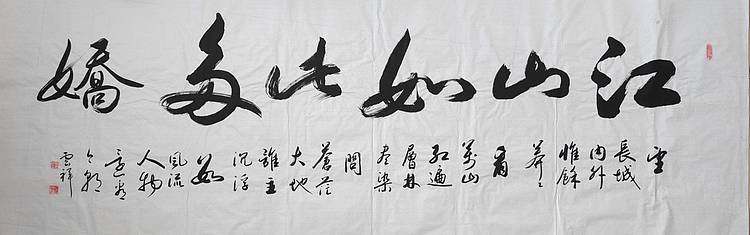 江山如此多嬌
望
長城
內外
惟餘
莽々
看
萬山
紅遍
層林
盡染
問
蒼茫
大地
誰主
沉浮
數
風流
人物
還看
今朝
雲祥